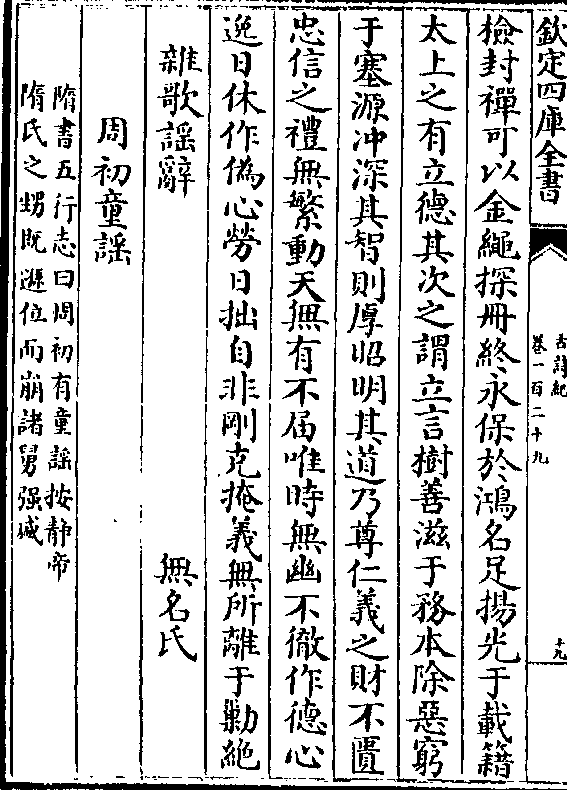 欽定四庫全書
古詩紀
卷一百二十九
十九
檢封禪可以金繩探冊終永保於鴻名足揚光于載籍
太上之有立德其次之謂立言樹善滋于務本除惡窮
于塞源冲深其智則厚昭明其道乃尊仁義之財不匱
忠信之禮無繁動天無有不届唯時無幽不徹作德心
逸日休作僞心勞日拙自非剛克掩義無所離于勦絶
雜歌謡辭
無名氏
周初童謡
隋書五行志曰周初有童謡按静帝
隋氏之甥既遜位而崩諸舅强盛